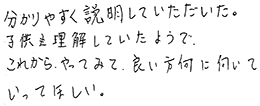 分かりやすく説明していただいた。
子供も理解していたようで、
これから、やってみて、良い方向に向いて
いってほしい。